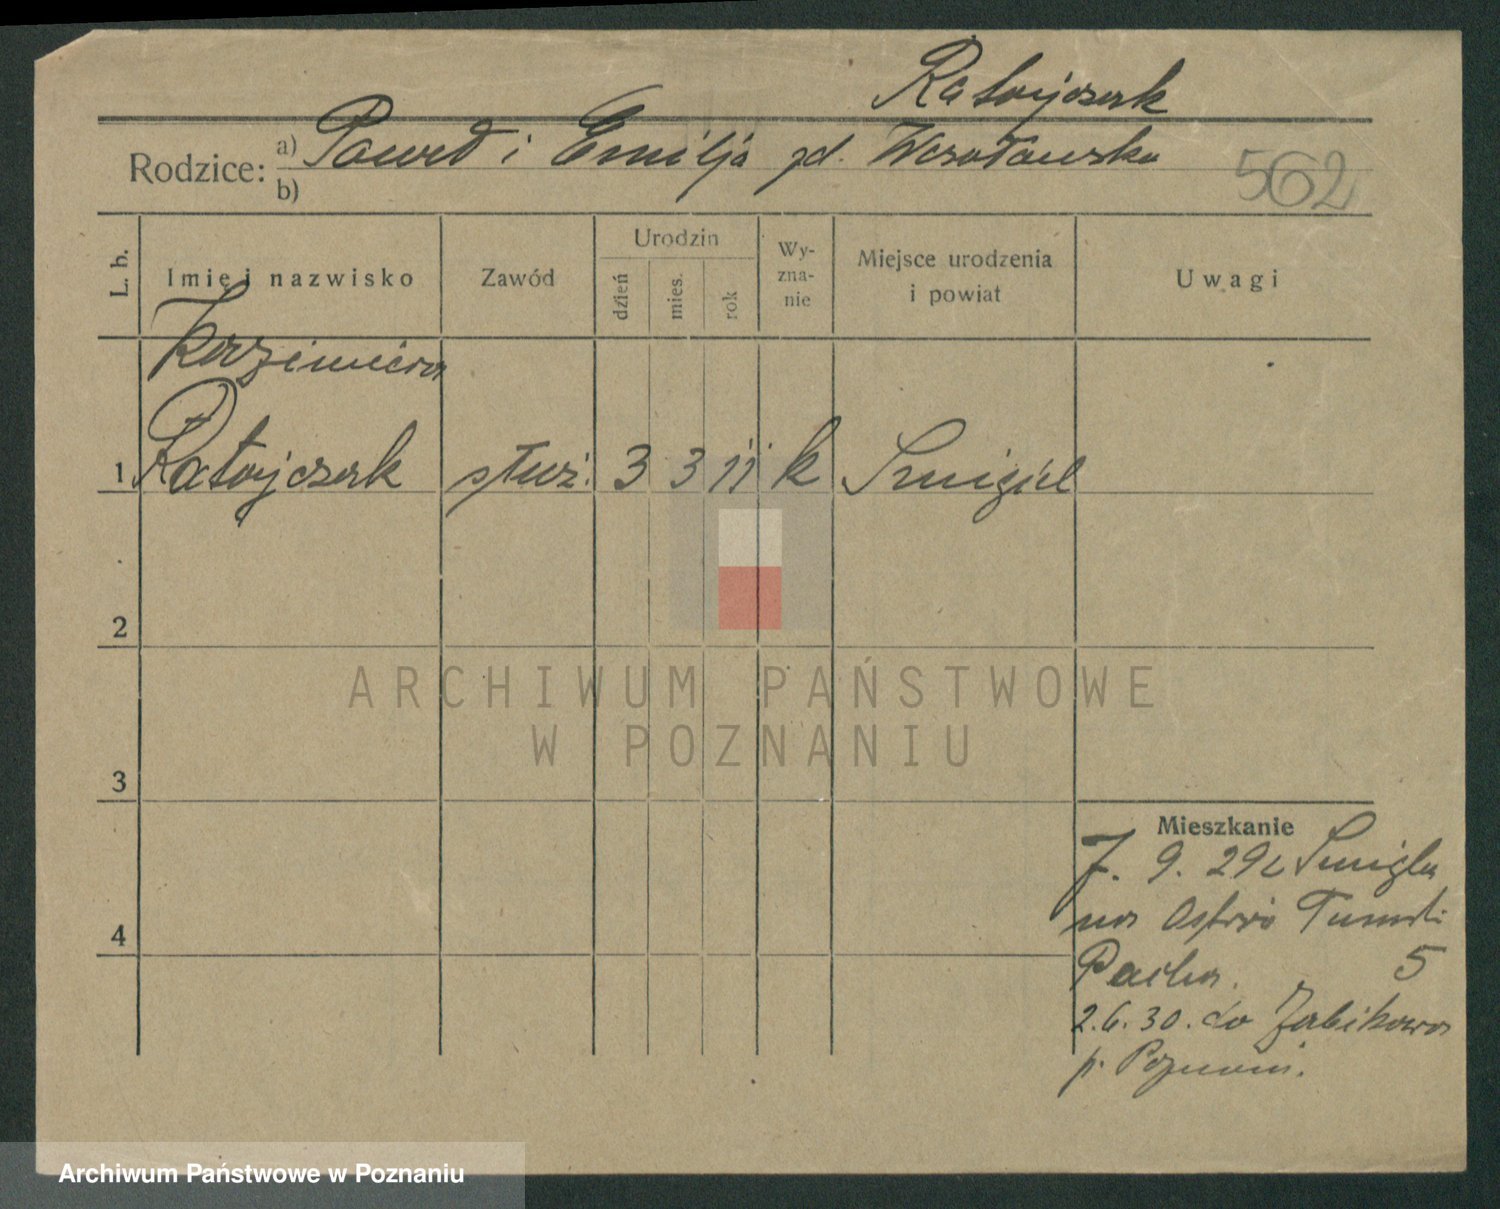 Ratajczak
Rodzice: a) Paweł i Emilja zd. Wcrotawska
b)
562
L. b. Imię i nazwisko Zawód Urodzin dzień mies. rok Wy-zna-nie Miejsce urodzenia i powiat Uwagi
Kazimiera
1 Ratajczak służ. 3 3 11 k Śmigiel
2
ARCHIWUM PAŃSTWOWE
W POZNANIU
3
Mieszkanie
7. 9. 29 z Śmigla
na
4
5
2.6.30. do Żabikowa
p. Poznań.
Archiwum Państwowe w Poznaniu